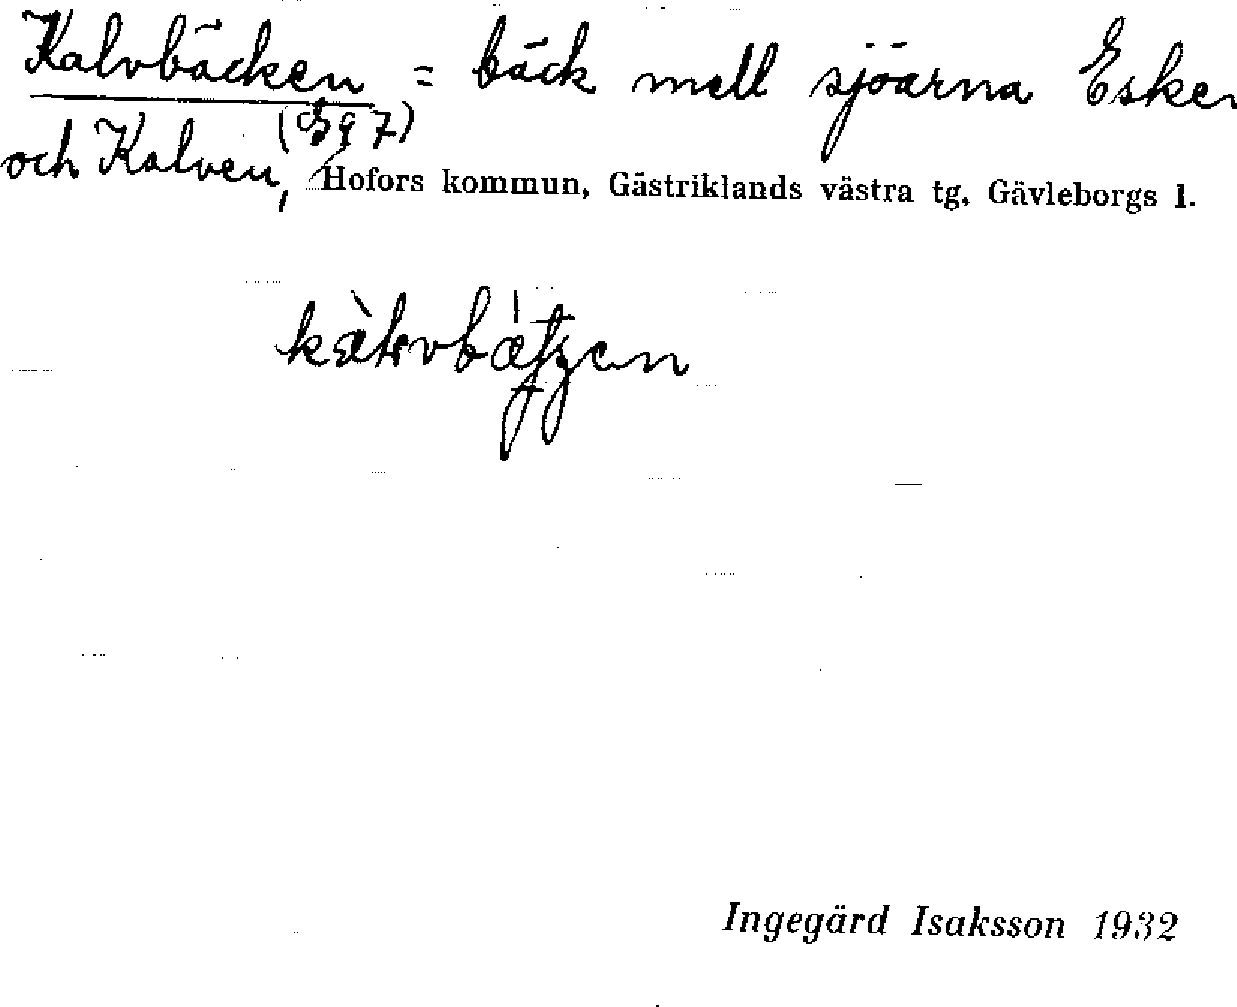 Kalvbäcken = bäck mell sjöarna Esken
(Bq 7)
och Kalven, Hofors kommun, Gästriklands västra tg, Gävleborgs l.
Ingegärd Isaksson 1932